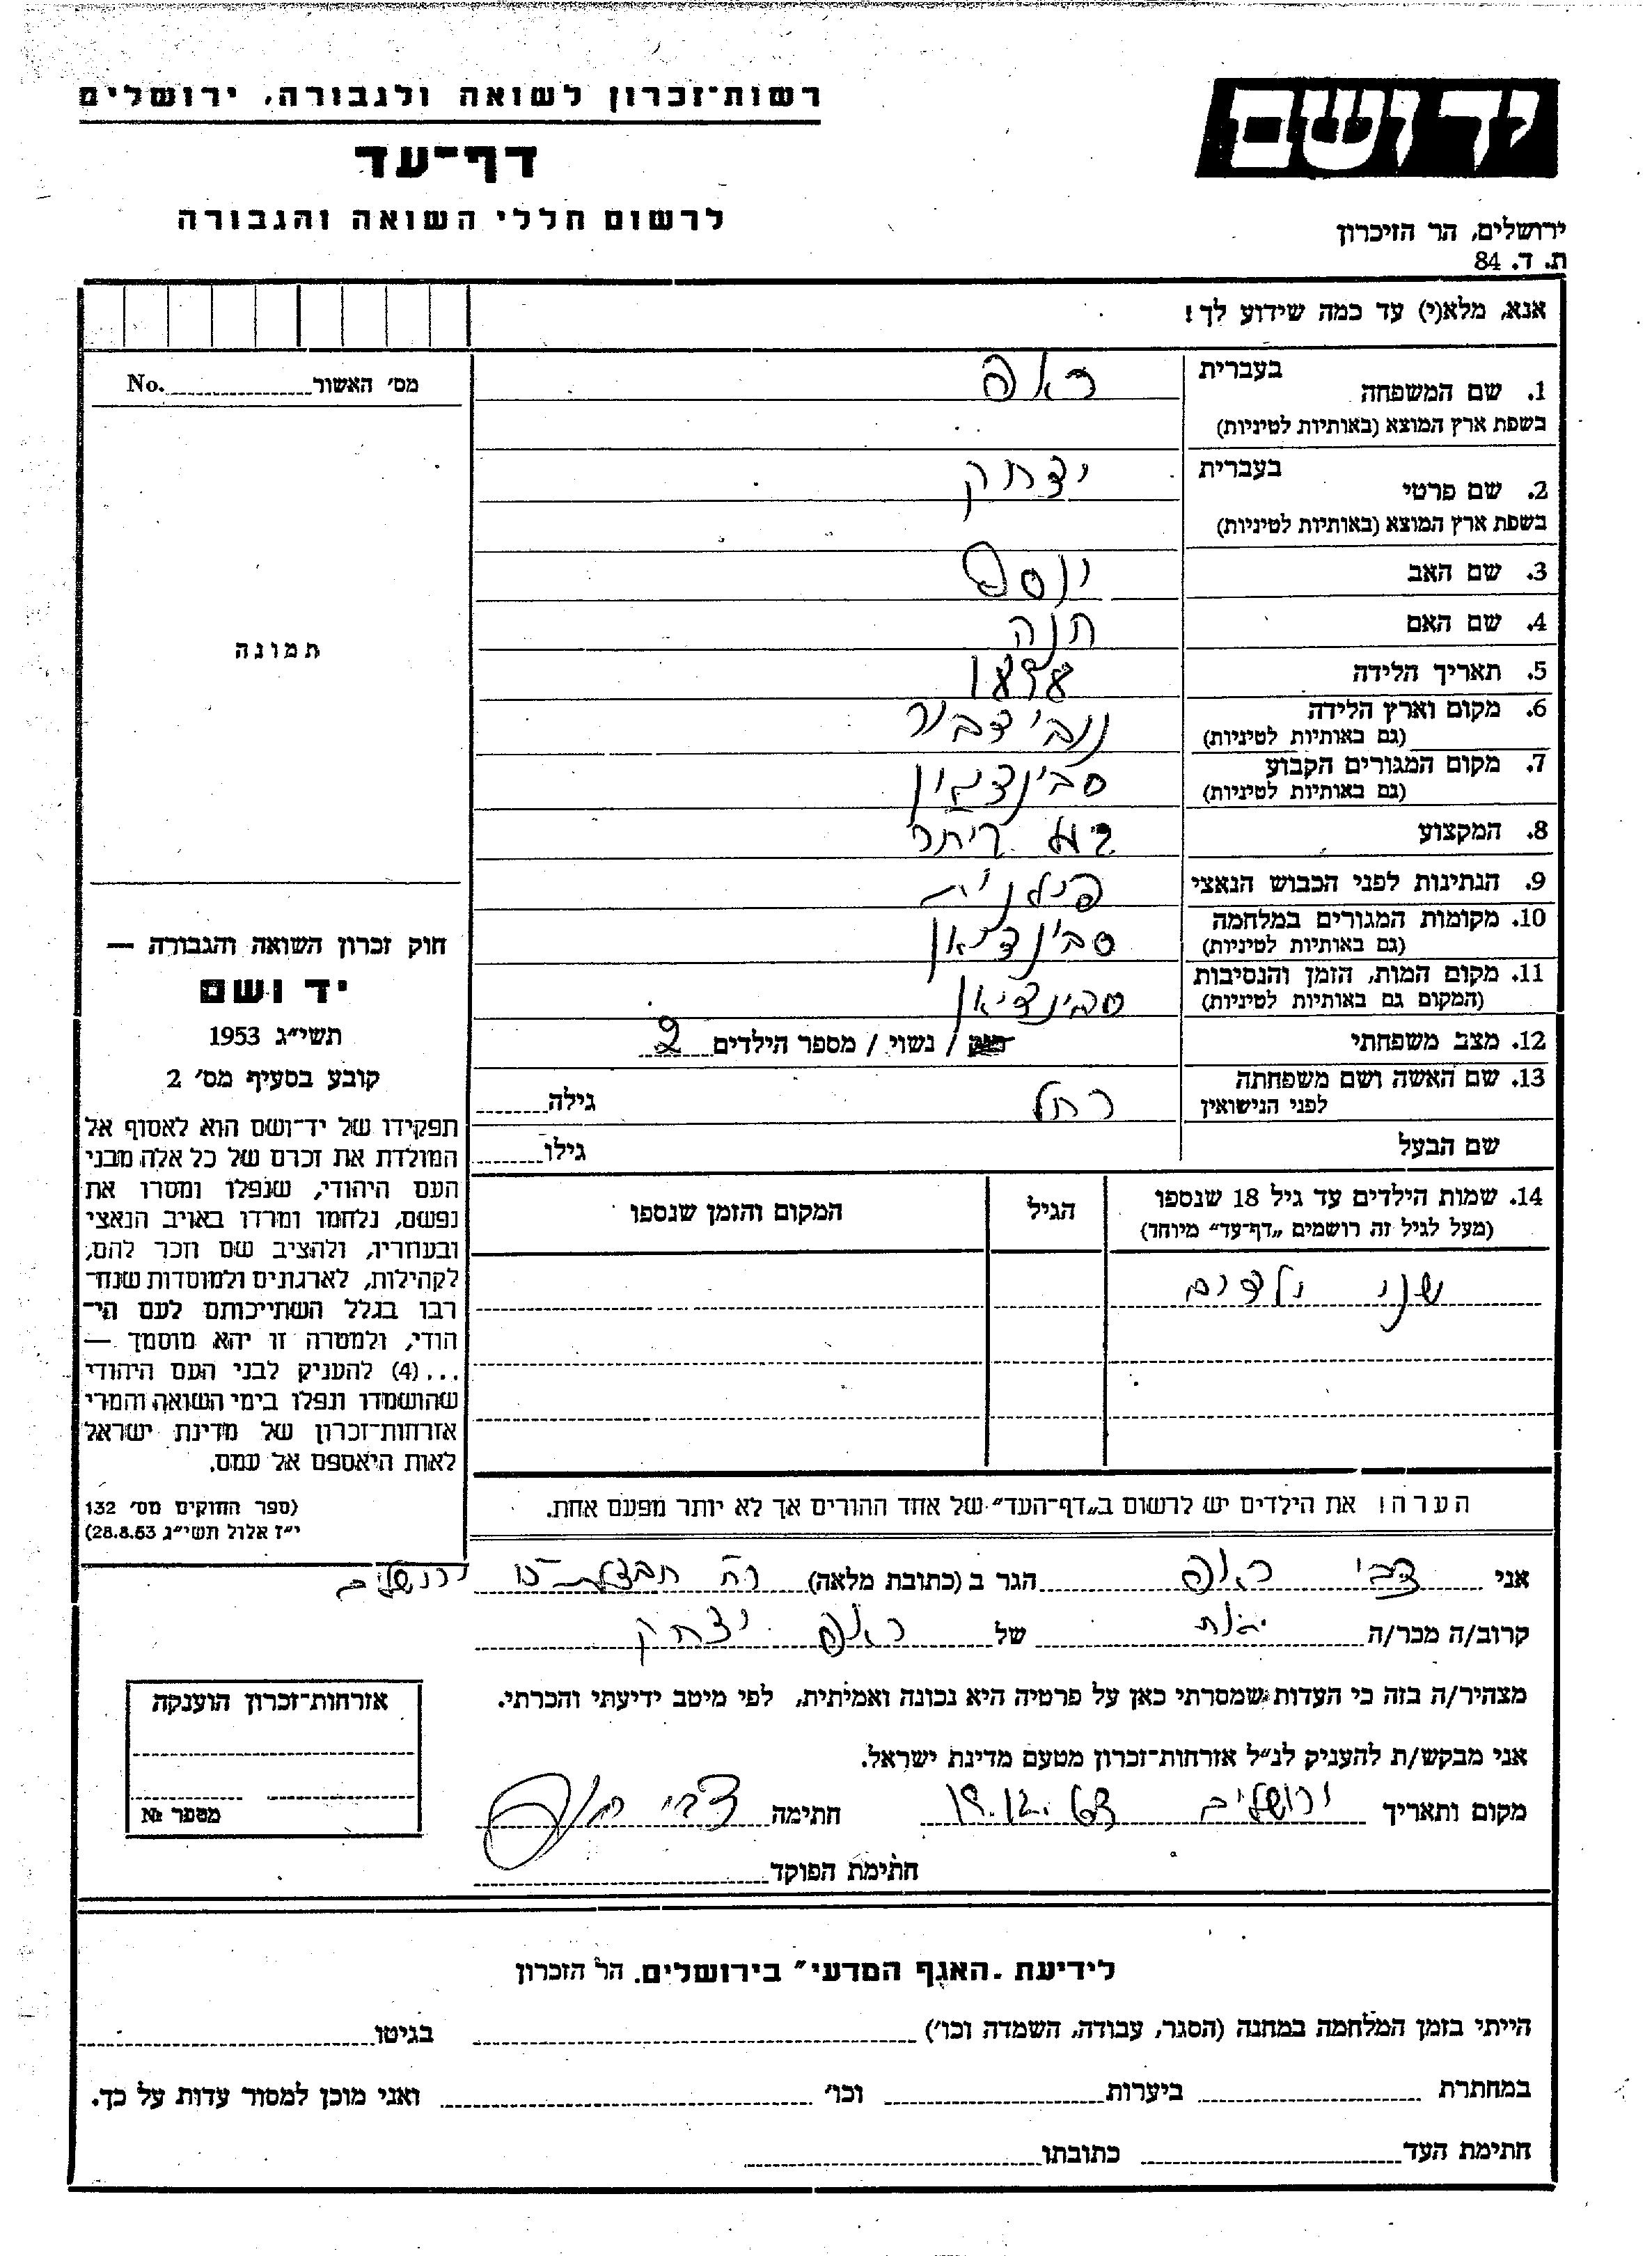 רשות־זכרון לשואה ולגבורה, ירושלים
דף־עד
לרשום חללי השואה והגבורה
יד ושם
ירושלים, הר הזיכרון
ת. ד. 84
אנא, מלא(י) עד כמה שידוע לך!
מס׳ האשור No.
תמונה
1. שם המשפחה בעברית ראפ
בשפת ארץ המוצא (באותיות לטיניות)
2. שם פרטי בעברית יצחק
בשפת ארץ המוצא (באותיות לטיניות)
3. שם האב יוסף
4. שם האם חנה
5. תאריך הלידה
6. מקום וארץ הלידה
(גם באותיות לטיניות)
7. מקום המגורים הקבוע סבינציאן
(גם באותיות לטיניות)
8. המקצוע
9. הנתינות לפני הכבוש הנאצי פולנית
10. מקומות המגורים במלחמה סבינציאן
(גם באותיות לטיניות)
11. מקום המות, הזמן והנסיבות סבינציאן
(המקום גם באותיות לטיניות)
12. מצב משפחתי / נשוי / מספר הילדים 2
13. שם האשה ושם משפחתה רחל גילה
לפני הנישואין
שם הבעל גילו
14. שמות הילדים עד גיל 18 שנספו הגיל המקום והזמן שנספו
(מעל לגיל זה רושמים „דף־עד״ מיוחד)
שני ילדים
הערה! את הילדים יש לרשום ב„דף־העד״ של אחד ההורים אך לא יותר מפעם אחת.
חוק זכרון השואה והגבורה —
יד ושם
תשי״ג 1953
קובע בסעיף מס׳ 2
תפקידו של יד־ושם הוא לאסוף אל
המולדת את זכרם של כל אלה מבני
העם היהודי, שנפלו ומסרו את
נפשם, נלחמו ומרדו באויב הנאצי
ובעוזריו, ולהציב שם וזכר להם,
לקהילות, לארגונים ולמוסדות שנח־
רבו בגלל השתייכותם לעם הי־
הודי, ולמטרה זו יהא מוסמך —
...(4) להעניק לבני העם היהודי
שהושמדו ונפלו בימי השואה והמרי
אזרחות־זכרון של מדינת ישראל
לאות היאספם אל עמם.
(ספר החוקים מס׳ 132
י״ז אלול תשי״ג 28.8.53)
אני צבי ראפ הגר ב (כתובת מלאה) רח חבצלת 10 ירושלים
קרוב/ה מכר/ה של ראפ יצחק
מצהיר/ה בזה כי העדות שמסרתי כאן על פרטיה היא נכונה ואמיתית, לפי מיטב ידיעתי והכרתי.
אני מבקש/ת להעניק לנ״ל אזרחות־זכרון מטעם מדינת ישראל.
מקום ותאריך ירושלים חתימה צבי ראפ
חתימת הפוקד
אזרחות־זכרון הוענקה
מספר №
לידיעת „האגף המדעי״ בירושלים, הר הזכרון
הייתי בזמן המלחמה במחנה (הסגר, עבודה, השמדה וכו׳) בגיטו
במחתרת ביערות וכו׳ ואני מוכן למסור עדות על כך.
חתימת העד כתובתו